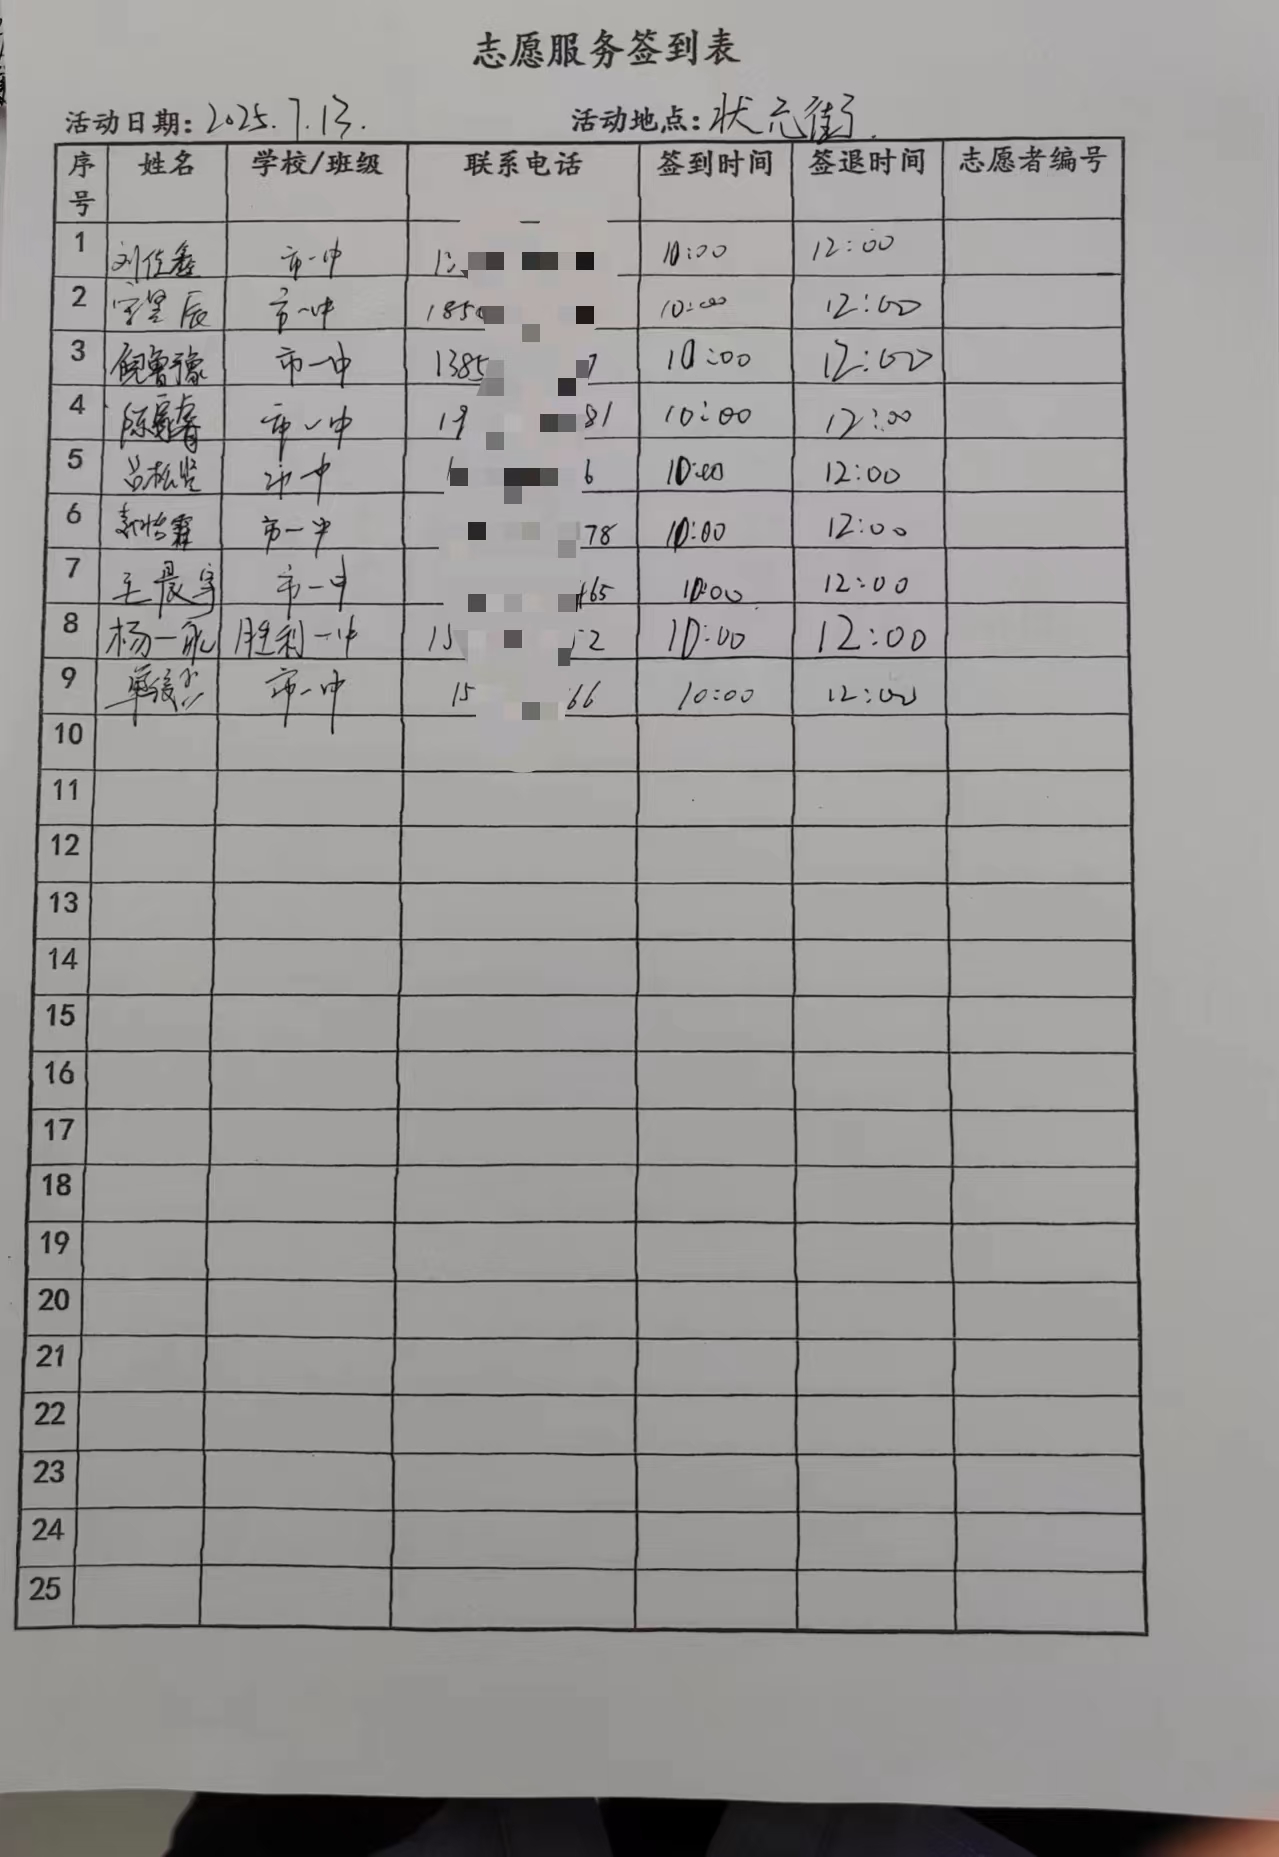 志愿服务签到表
活动日期: 2025.7.13. 活动地点: 状元街.
序号 姓名 学校/班级 联系电话 签到时间 签退时间 志愿者编号
1 刘佳鑫 市一中 13 10:00 12:00
2 辰 市一中 185 10:00 12:00
3 倪鲁豫 市一中 1385 7 10:00 12:00
4 陈 市一中 19 81 10:00 12:00
5 吕松 市一中 1 6 10:00 12:00
6 霖 市一中 78 10:00 12:00
7 王晨宇 市一中 65 10:00 12:00
8 杨一 胜利一中 15 52 10:00 12:00
9 市一中 15 66 10:00 12:00
10
11
12
13
14
15
16
17
18
19
20
21
22
23
24
25